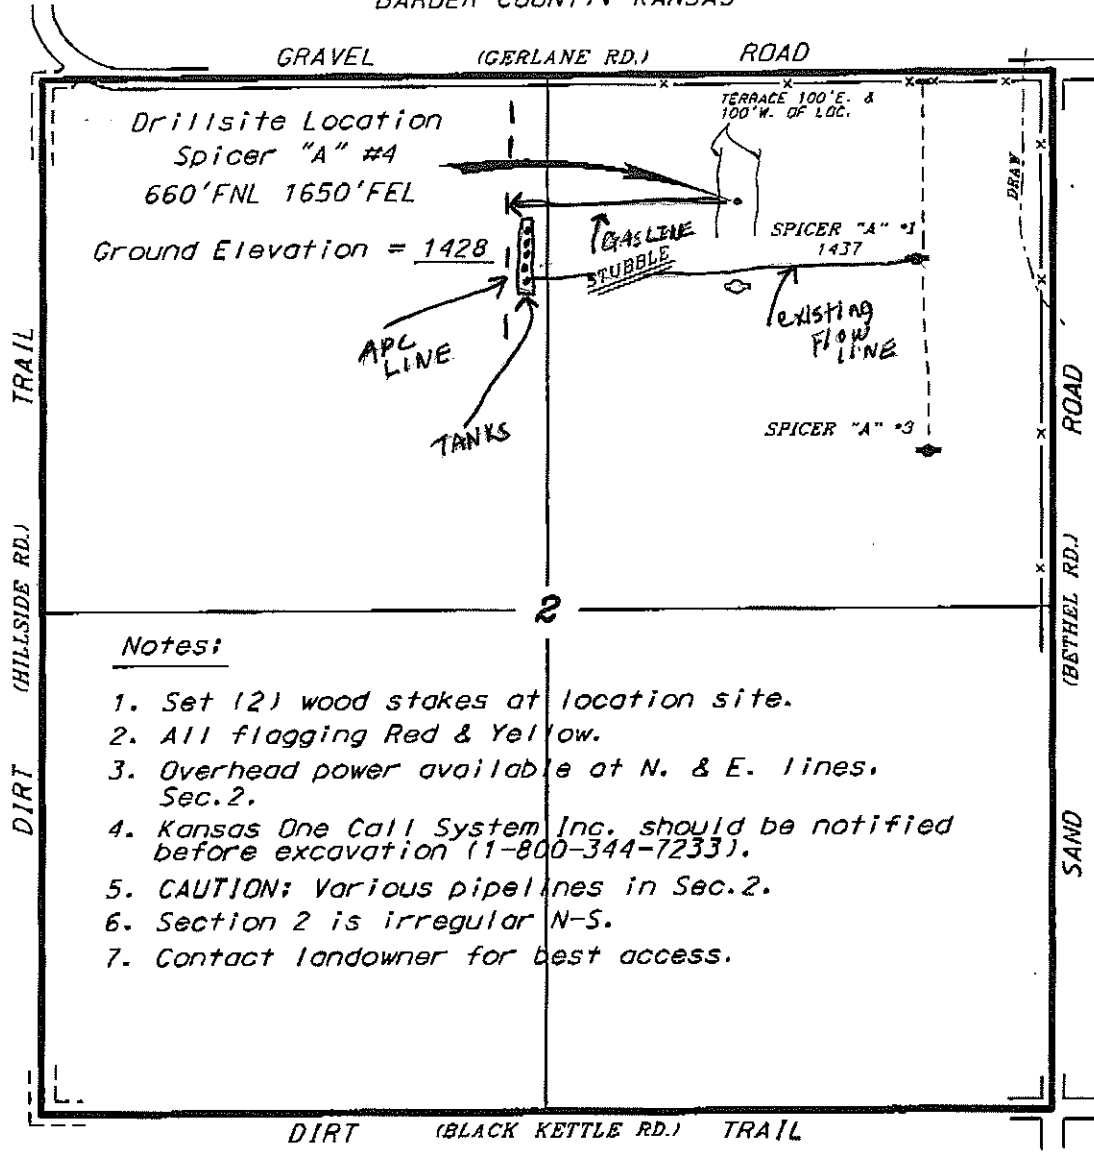 GRAVEL (GERLANE RD.) ROAD
TERRACE 100'E. &
100'W. OF LOC.
Drillsite Location
Spicer "A" #4
660'FNL 1650'FEL
Ground Elevation = 1428
GASLINE
STUBBLE
SPICER "A" #1
1437
DRAW
existing
Flow
LINE
APC
LINE
TANKS
SPICER "A" #3
DIRT (HILLSIDE RD.) TRAIL
SAND (BETHEL RD.) ROAD
2
Notes:
1. Set (2) wood stakes at location site.
2. All flagging Red & Yellow.
3. Overhead power available at N. & E. lines.
Sec.2.
4. Kansas One Call System Inc. should be notified
before excavation (1-800-344-7233).
5. CAUTION: Various pipelines in Sec.2.
6. Section 2 is irregular N-S.
7. Contact landowner for best access.
DIRT (BLACK KETTLE RD.) TRAIL